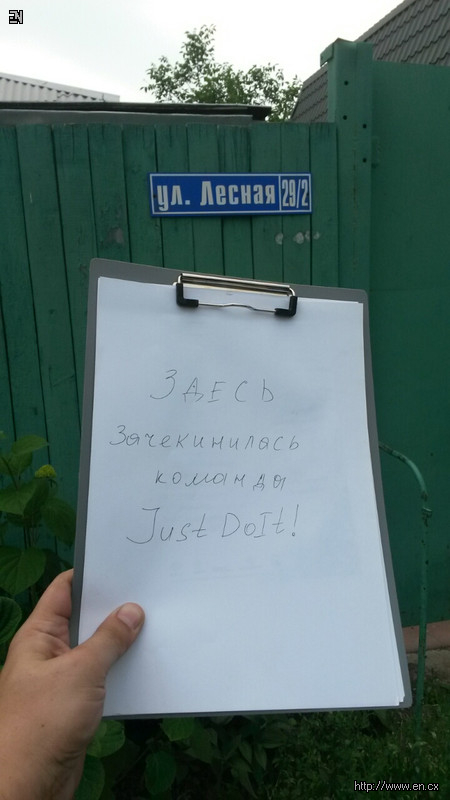 EN
ул. Лесная 29/2
Здесь
Зачекинилась
команда
Just DoIt!
http://www.en.cx